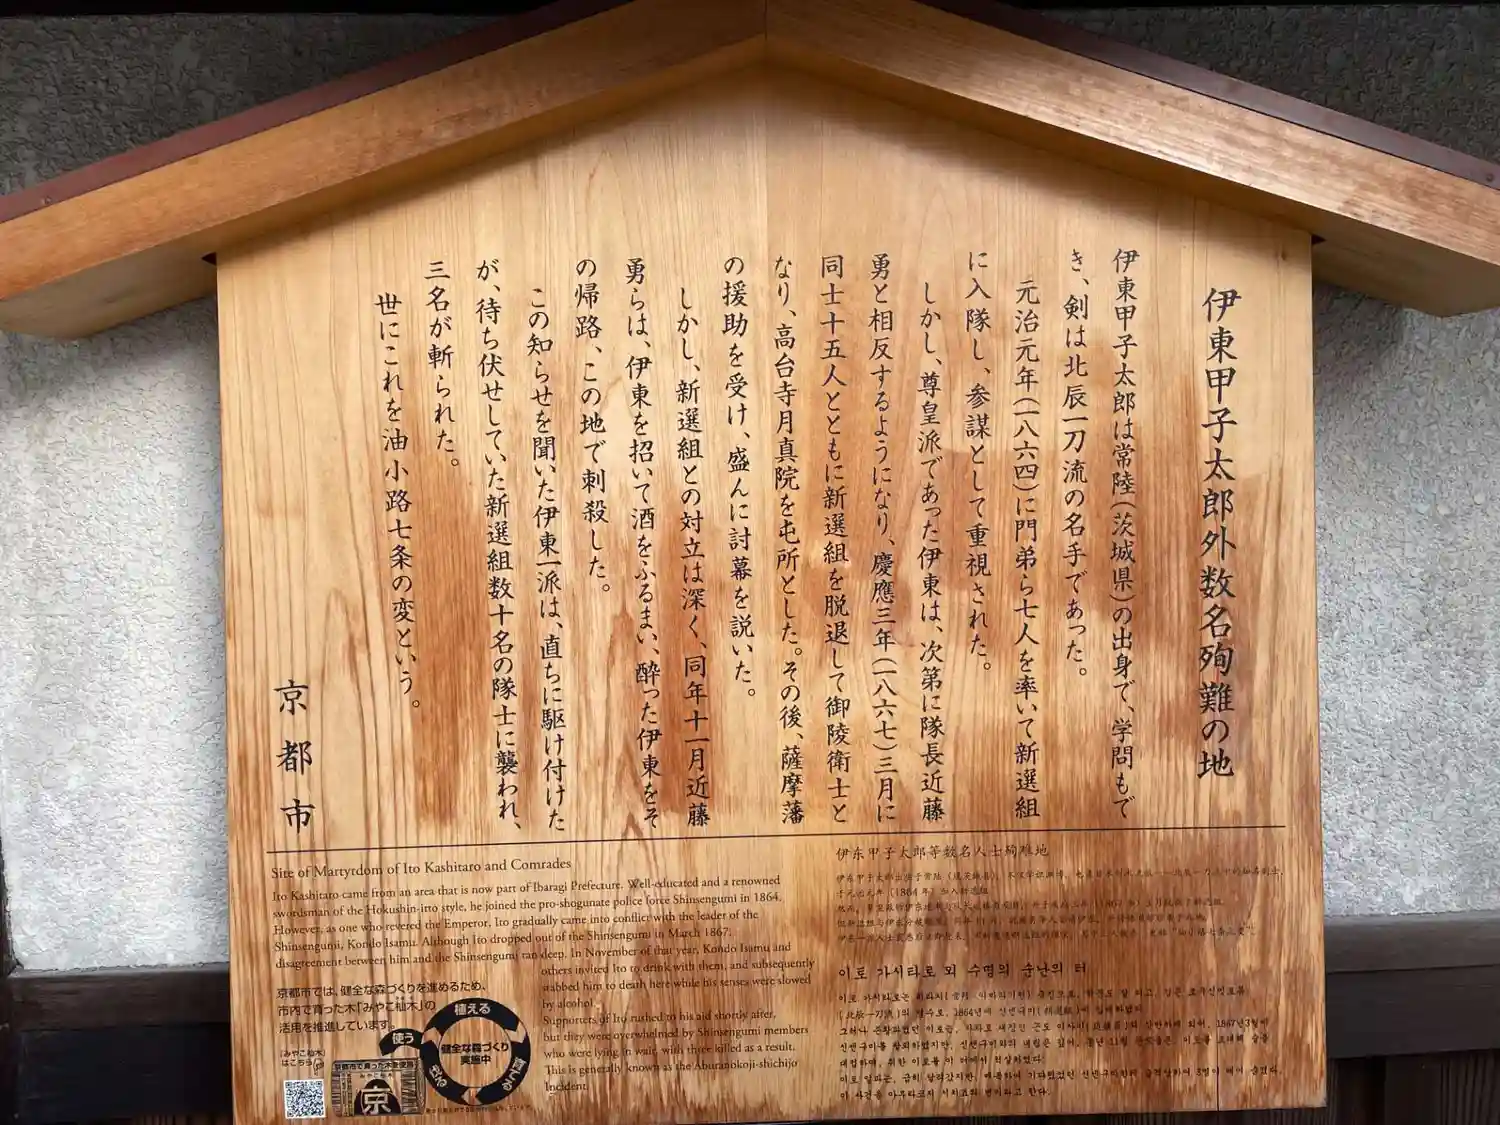 伊東甲子太郎外数名殉難の地
伊東甲子太郎は常陸(茨城県)の出身で、学問もで
き、剣は北辰一刀流の名手であった。
元治元年(一八六四)に門弟ら七人を率いて新選組
に入隊し、参謀として重視された。
しかし、尊皇派であった伊東は、次第に隊長近藤
勇と相反するようになり、慶應三年(一八六七)三月に
同士十五人とともに新選組を脱退して御陵衛士と
なり、高台寺月真院を屯所とした。その後、薩摩藩
の援助を受け、盛んに討幕を説いた。
しかし、新選組との対立は深く、同年十一月近藤
勇らは、伊東を招いて酒をふるまい、酔った伊東をそ
の帰路、この地で刺殺した。
この知らせを聞いた伊東一派は、直ちに駆け付けた
が、待ち伏せしていた新選組数十名の隊士に襲われ、
三名が斬られた。
世にこれを油小路七条の変という。
京都市
Site of Martyrdom of Ito Kashitaro and Comrades
Ito Kashitaro came from an area that is now part of Ibaragi Prefecture. Well-educated and a renowned
swordsman of the Hokushin-itto style, he joined the pro-shogunate police force Shinsengumi in 1864.
However, as one who revered the Emperor, Ito gradually came into conflict with the leader of the
Shinsengumi, Kondo Isamu. Although Ito dropped out of the Shinsengumi in March 1867,
disagreement between him and the Shinsengumi ran deep. In November of that year, Kondo Isamu and
others invited Ito to drink with them, and subsequently
stabbed him to death here while his senses were slowed
by alcohol.
Supporters of Ito rushed to his aid shortly after,
but they were overwhelmed by Shinsengumi members
who were lying in wait, with three killed as a result.
This is generally known as the Aburanokoji-shichijo
Incident.
京都市では、健全な森づくりを進めるため、
市内で育った木「みやこ杣木」の
活用を推進しています。
「みやこ杣木」
はこちら
植える
育てる
使う
健全な森づくり
実施中
京都市で育った木を使用
みやこ杣木
京
伊东甲子太郎等数名人士殉难地
이토 가시타로 외 수명의 순난의 터